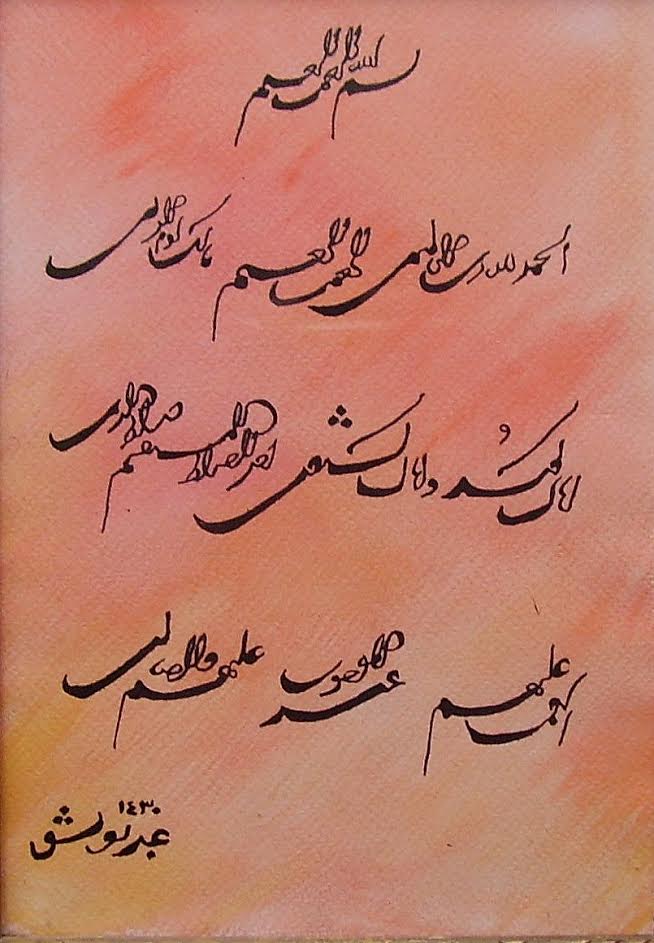 بسم الله الرحمن الرحيم
الحمد لله رب العالمين الرحمن الرحيم مالك يوم الدين
اياك نعبد واياك نستعين اهدنا الصراط المستقيم صراط الذين
انعمت عليهم غير المغضوب عليهم ولا الضالين
١٤٣٠